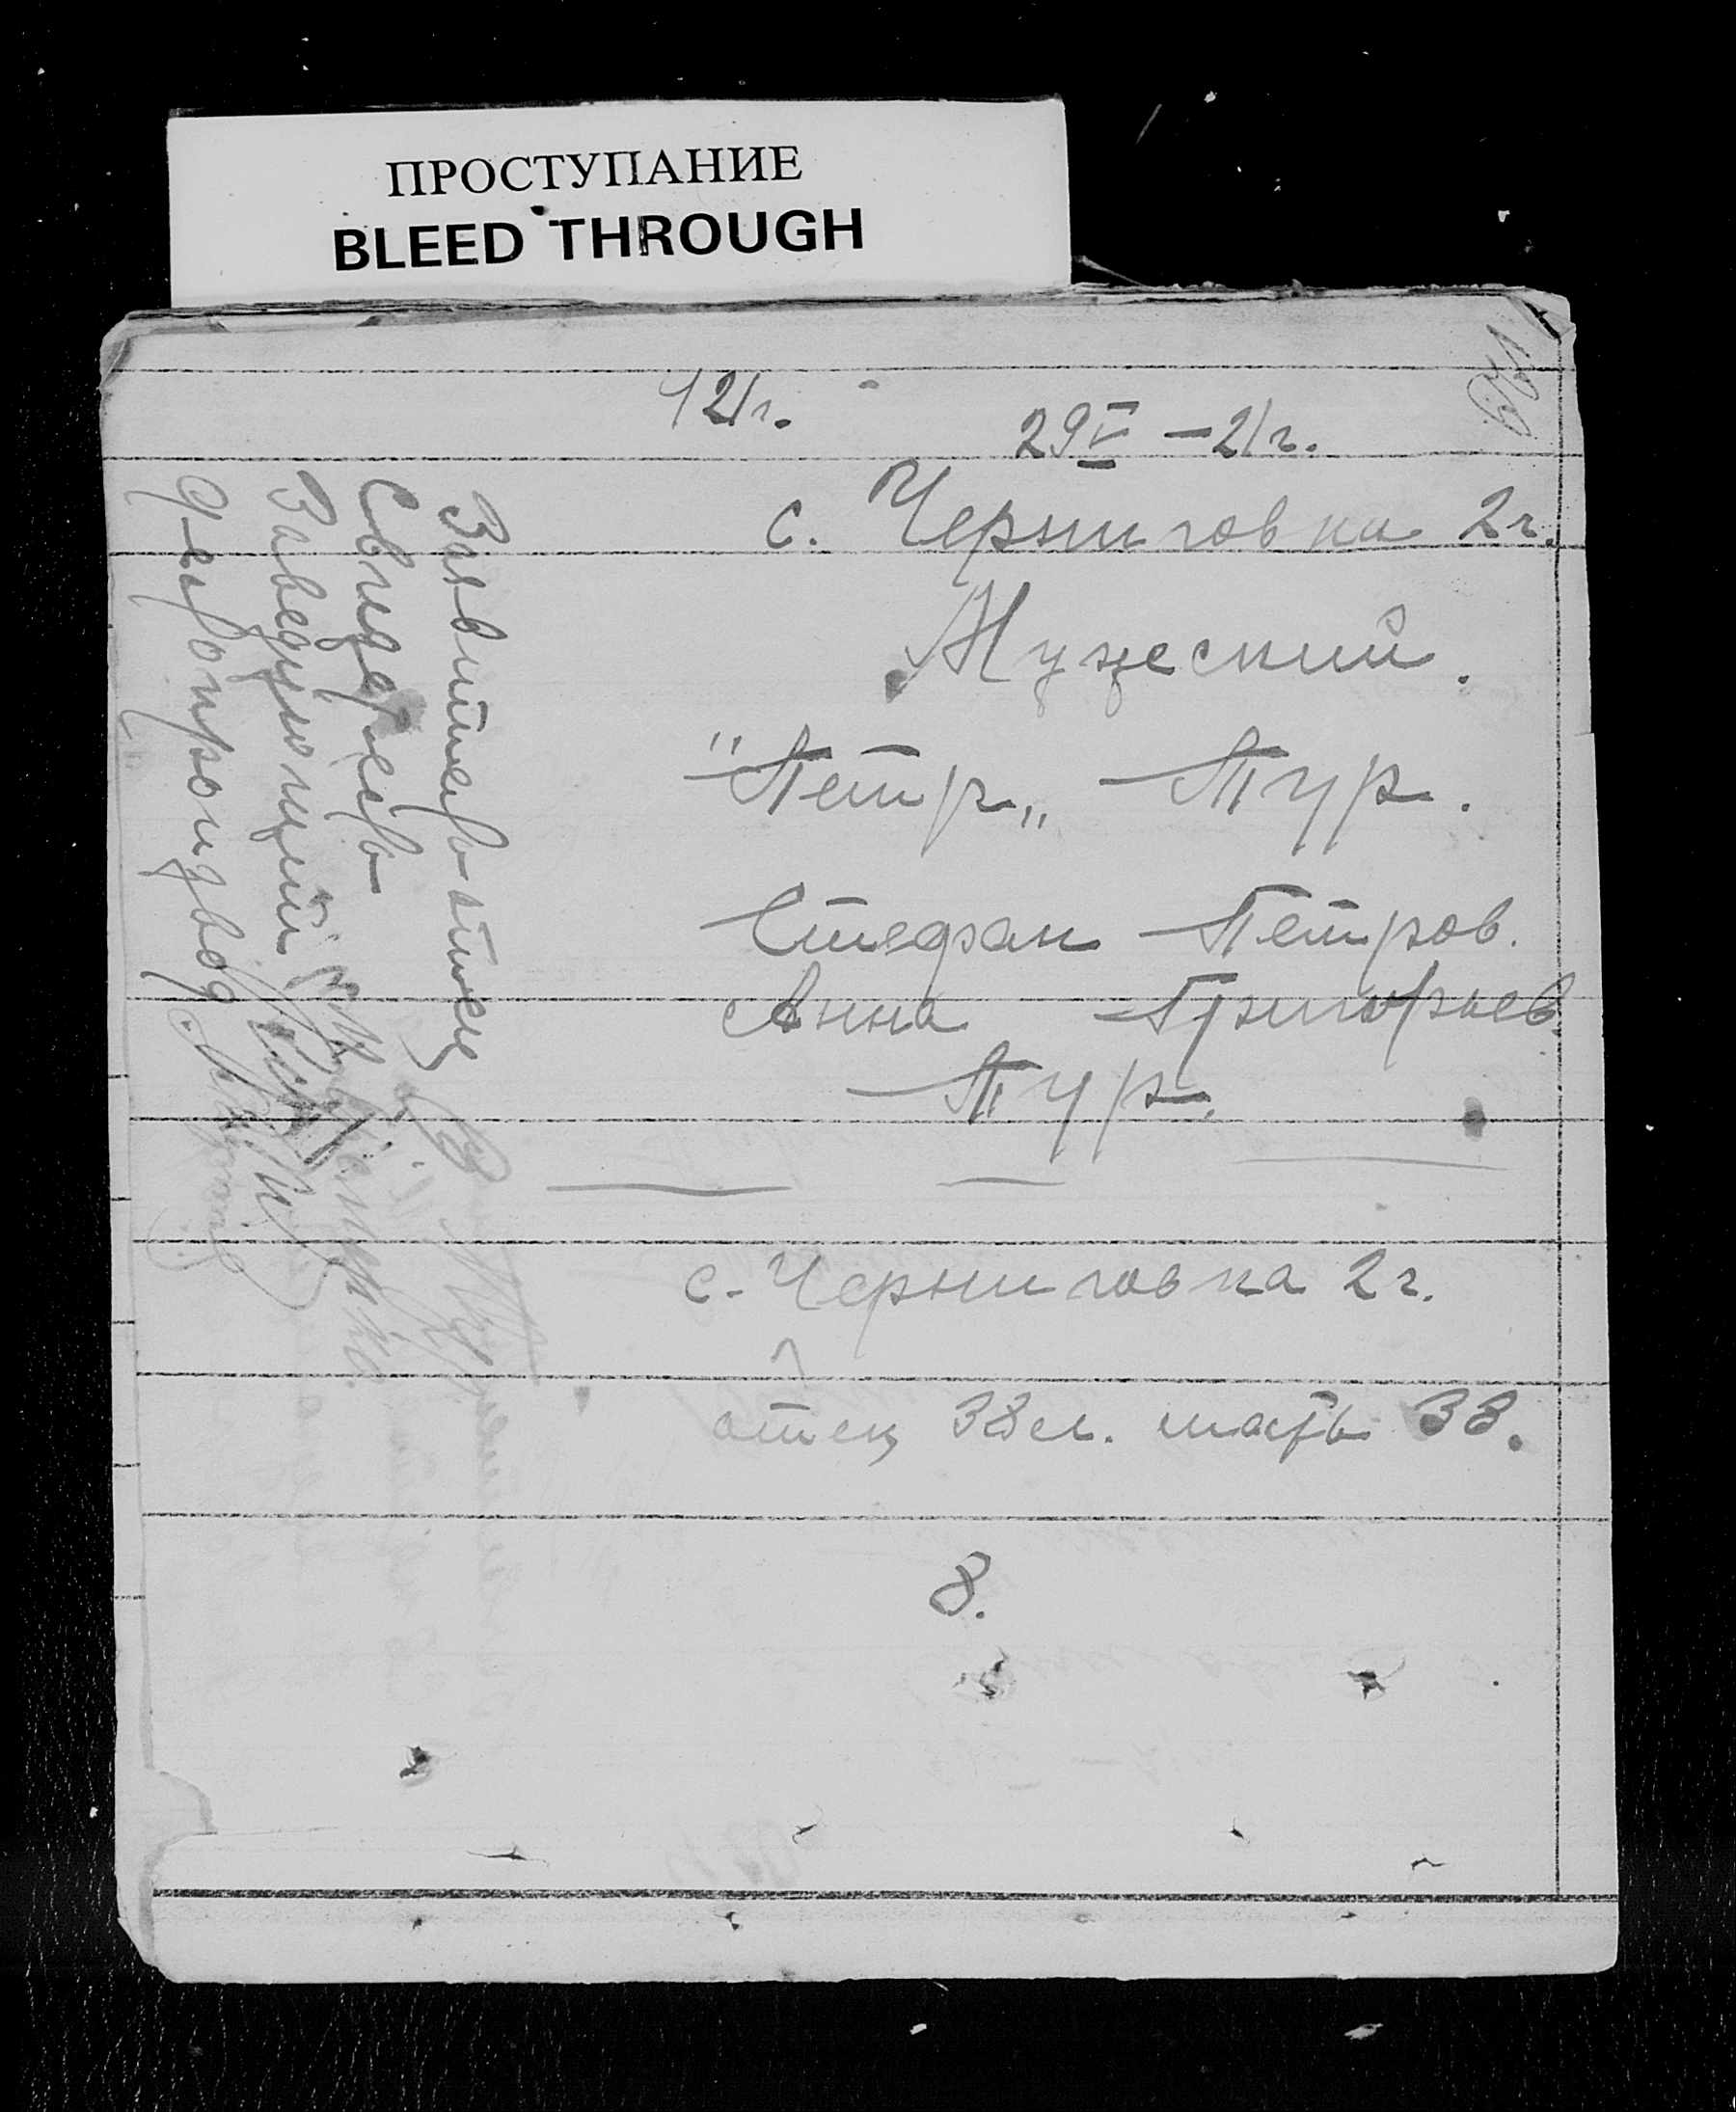 ПРОСТУПАНИЕ
BLEED THROUGH
121г.
29 V – 21г.
с. Черниговка 2г.
Мужеский.
"Петр„ Тур.
Стефан Петров.
Анна Григорьев.
Тур.
с. Черниговка 2г.
отец 38л. мать 33.
8.
Заявитель отец
Свидетель
Заведующий
Делопроизвод